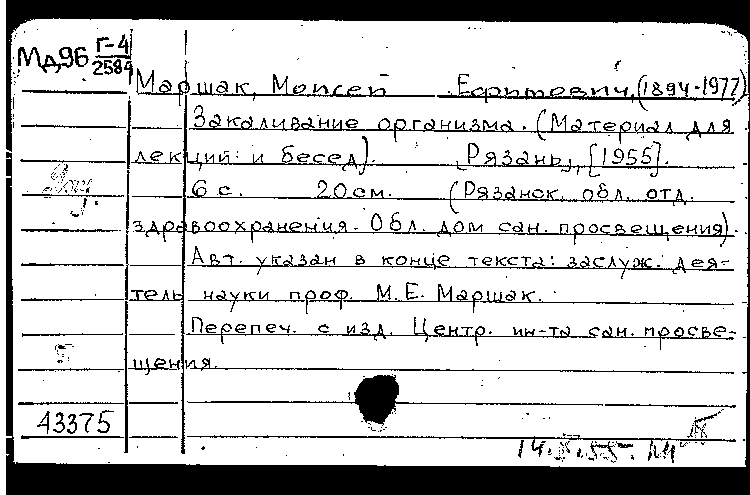 Мд96 Г-4
2584
Маршак, Моисей Ефимович, (1894-1977)
Закаливание организма. (Материал для
лекций и бесед). [Рязань], [1955].
6 с. 20 см. (Рязанск. обл. отд.
здравоохранения. Обл. дом сан. просвещения).
Авт. указан в конце текста: заслуж. дея-
тель науки проф. М.Е. Маршак.
Перепеч. с изд. Центр. ин-та сан. просве-
щения.
5
43375
14.X.55.